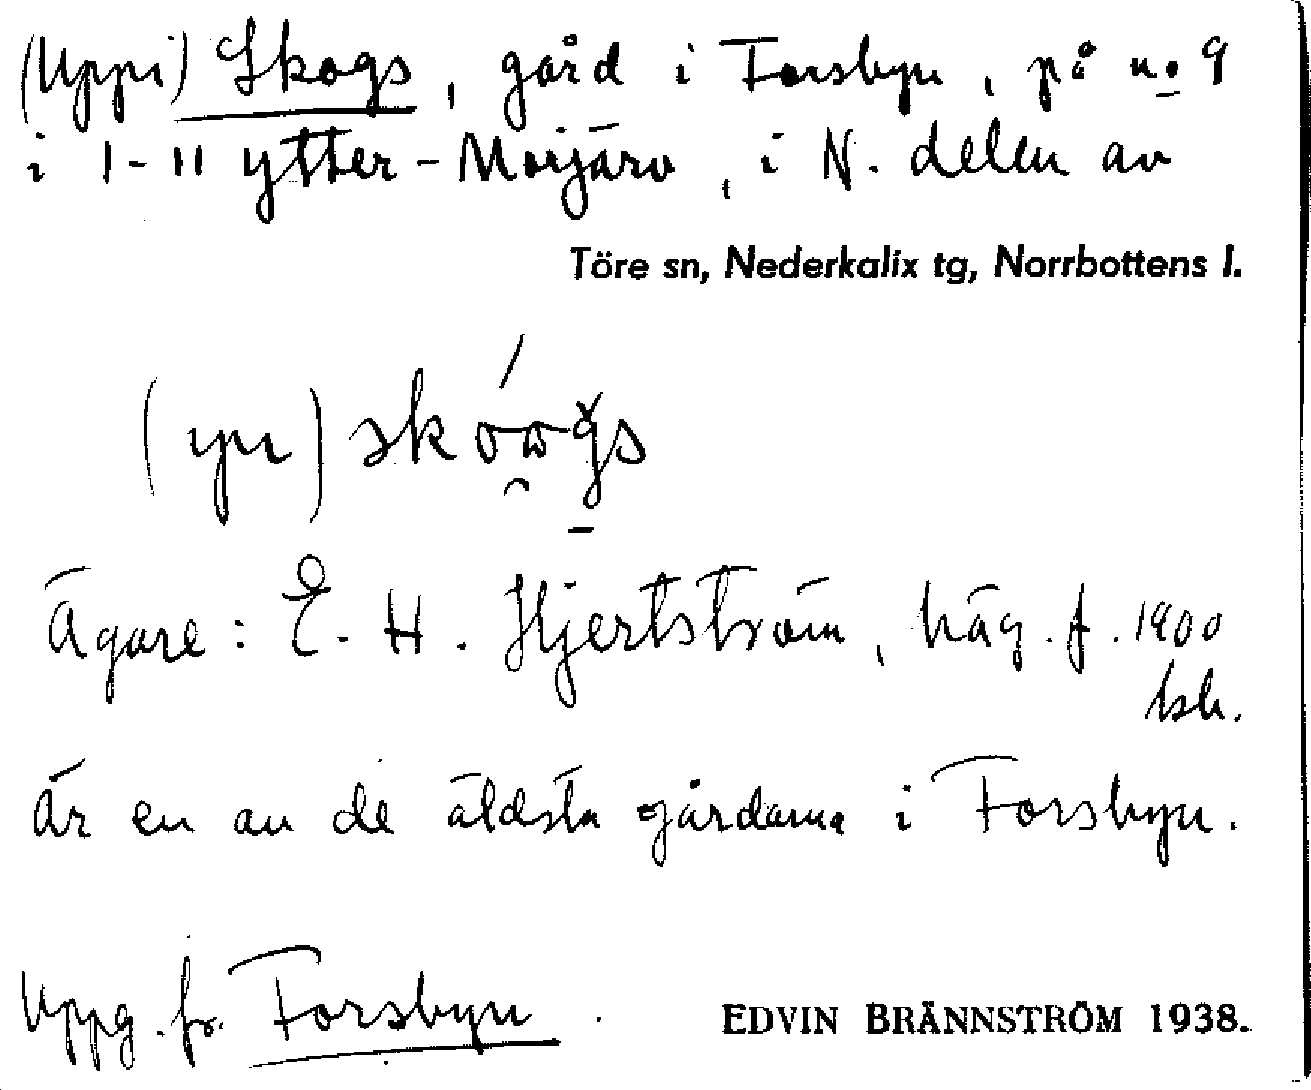 (Uppi) Skogs, gård i Forsbyn, på no 9
i 1-11 ytter-Morjärv, i N. delen av
Töre sn, Nederkalix tg, Norrbottens l.
Ägare: E. H. Hjertström, häg. f. 1900
är en av de äldsta gårdarna i Forsbyn.
Uppg. fr. Forsbyn.
EDVIN BRÄNNSTRÖM 1938.